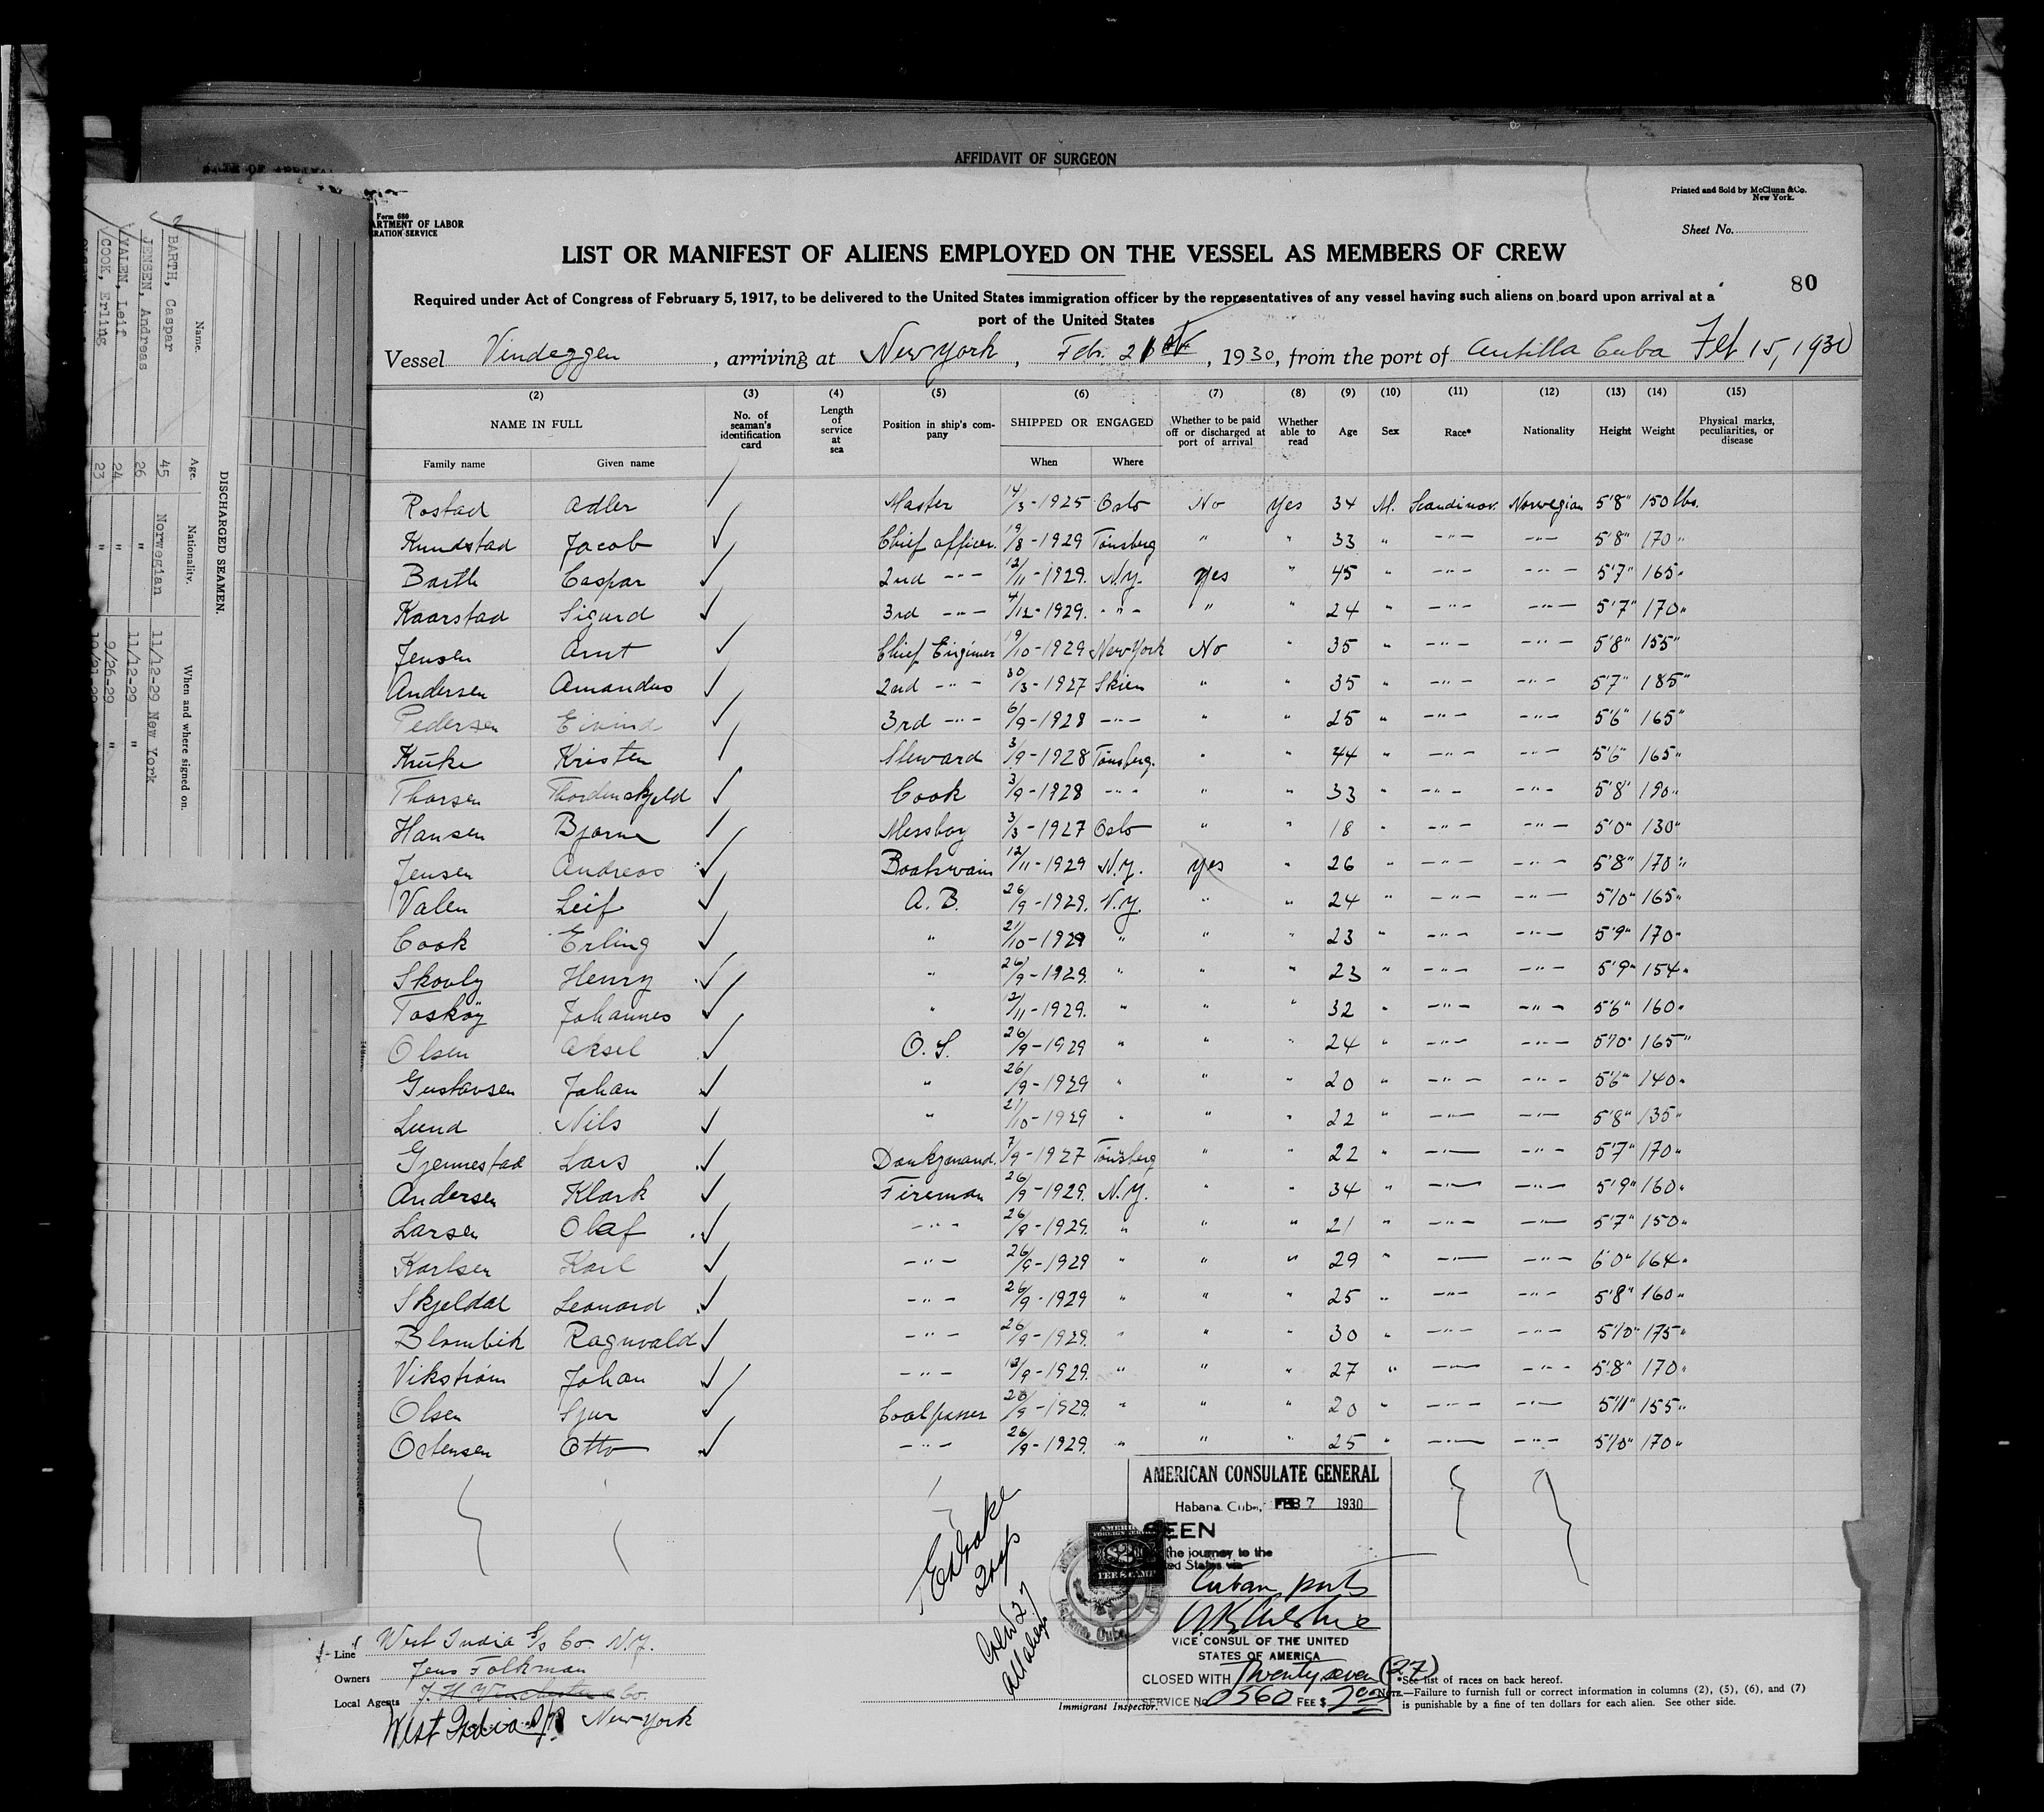 AFFIDAVIT OF SURGEON
Printed and Sold by McClunn & Co.
New York.
Form 680
ARTMENT OF LABOR
RATION SERVICE
Sheet No.
LIST OR MANIFEST OF ALIENS EMPLOYED ON THE VESSEL AS MEMBERS OF CREW
80
Required under Act of Congress of February 5, 1917, to be delivered to the United States immigration officer by the representatives of any vessel having such aliens on board upon arrival at a
port of the United States
Vessel Vindeggen, arriving at New York, Feb. 21, 1930, from the port of Antilla Cuba Feb 15, 1930
(2) (3) (4) (5) (6) (7) (8) (9) (10) (11) (12) (13) (14) (15)
NAME IN FULL No. of seaman's identification card Length of service at sea Position in ship's company SHIPPED OR ENGAGED Whether to be paid off or discharged at port of arrival Whether able to read Age Sex Race* Nationality Height Weight Physical marks, peculiarities, or disease
Family name Given name When Where
Rostad Adler Master 14/3-1925 Oslo No Yes 34 M. Scandinav. Norwegian 5'8" 150 lbs.
Knudstad Jacob Chief officer. 19/8-1929 Tönsberg " " 33 " -"- -"- 5'8" 170 "
Barth Caspar 2nd -"- 12/11-1929. N.Y. Yes " 45 " -"- -"- 5'7" 165 "
Kaarstad Sigurd 3rd -"- 4/12-1929. -"- " " 24 " -"- -"- 5'7" 170 "
Jensen Arnt Chief Engineer 19/10-1929 New York No " 35 " -"- -"- 5'8" 155 "
Andersen Amandus 2nd -"- 30/3-1927 Skien " " 35 " -"- -"- 5'7" 185 "
Pedersen Eivind 3rd -"- 6/9-1928 -"- " " 25 " -"- -"- 5'6" 165 "
Kruke Kristen Steward 3/9-1928 Tönsberg. " " 44 " -"- -"- 5'6" 165 "
Thorsen Thordenskjold Cook 3/9-1928 -"- " " 33 " -"- -"- 5'8" 190 "
Hansen Bjarne Messboy 3/3-1927 Oslo " " 18 " -"- -"- 5'0" 130 "
Jensen Andreas Boatswain 12/11-1929 N.Y. Yes " 26 " -"- -"- 5'8" 170 "
Valen Leif A.B. 26/9-1929. N.Y. " " 24 " -"- -"- 5'10" 165 "
Cook Erling " 21/10-1929 " " " 23 " -"- -"- 5'9" 170 "
Skovly Henry " 26/9-1929. " " " 23 " -"- -"- 5'9" 154 "
Tosköy Johannes " 12/11-1929. " " " 32 " -"- -"- 5'6" 160 "
Olsen Aksel O.S. 26/9-1929 " " " 24 " -"- -"- 5'10" 165 "
Gustavsen Johan " 26/9-1929 " " " 20 " -"- -"- 5'6" 140 "
Lund Nils " 21/10-1929 " " " 22 " -"- -"- 5'8" 135 "
Gjennestad Lars Donkymand. 7/9-1927 Tönsberg " " 22 " -"- -"- 5'7" 170 "
Andersen Klark Fireman 26/9-1929. N.Y. " " 34 " -"- -"- 5'9" 160 "
Larsen Olaf -"- 26/9-1929. " " " 21 " -"- -"- 5'7" 150 "
Karlsen Karl -"- 26/9-1929 " " " 29 " -"- -"- 6'0" 164 "
Skjeldal Leonard -"- 26/9-1929 " " " 25 " -"- -"- 5'8" 160 "
Blombik Ragnvald -"- 26/9-1929. " " " 30 " -"- -"- 5'10" 175 "
Vikström Johan -"- 12/9-1929. " " " 27 " -"- -"- 5'8" 170 "
Olsen Sjur Coalpasser 26/9-1929. " " " 20 " -"- -"- 5'11" 155 "
Ostensen Otto -"- 26/9-1929. " " " 25 " -"- -"- 5'10" 170 "
AMERICAN CONSULATE GENERAL
Habana, Cuba, FEB 7 1930
SEEN
the journey to the
ted States via
Cuban ports
VICE CONSUL OF THE UNITED
STATES OF AMERICA
CLOSED WITH Twenty seven (27)
SERVICE No. 0560 FEE $ 2.00
Crew 27
all aliens
Line West India S/S Co. N.Y.
Owners Jens Folkman
Local Agents J. H. Winchester & Co.
West India S/S New York
Immigrant Inspector.
*See list of races on back hereof.
NOTE.—Failure to furnish full or correct information in columns (2), (5), (6), and (7)
is punishable by a fine of ten dollars for each alien. See other side.
DISCHARGED SEAMEN.
Name. Age. Nationality. When and where signed on.
BARTH, Caspar 45 Norwegian 11/12-29 New York
JENSEN, Andreas 26 " 11/12-29 "
VALEN, Leif 24 " 9/26-29 "
COOK, Erling 23 " 10/21-29 "